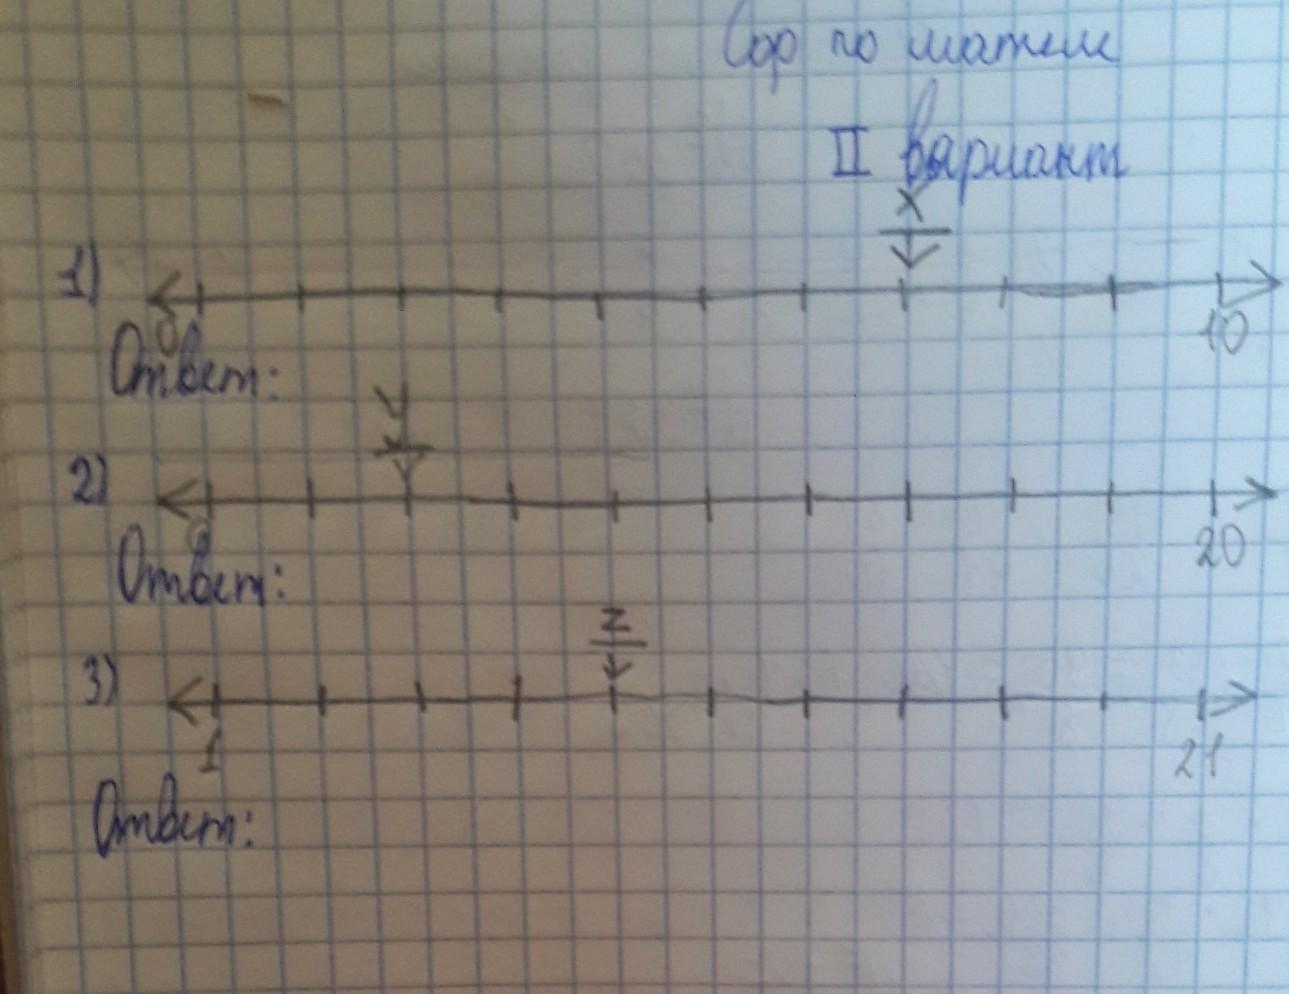 Сор по матем
II вариант
X
1)
0 10
Ответ:
y
2)
0 20
Ответ:
z
3)
1 21
Ответ: